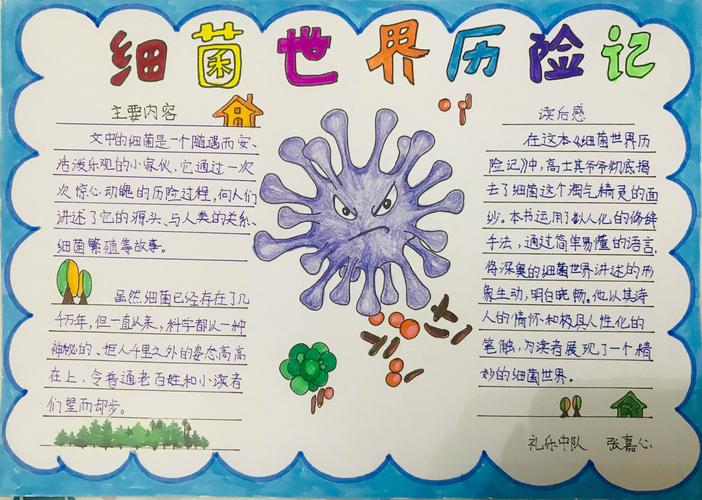 细菌世界历险记
主要内容
文中的细菌是一个随遇而安、
浩漫乐观的小家伙，它通过一次
次惊心动魄的历险过程，向人们
讲述了它的源头、与人类的关系、
细菌繁殖等故事。
虽然细菌已经存在了几
千万年，但一直以来，科学都以一种
神秘的、拒人千里之外的姿态高高
在上，令普通老百姓和小读者
们望而却步。
读后感
在这本《细菌世界历
险记》中，高士其爷爷彻底揭
去了细菌这个淘气精灵的面
纱。本书运用了拟人化的修辞
手法，通过简单易懂的语言，
将深奥的细菌世界讲述的形
象生动，明白晓畅。他以其诗
人的情怀和极具人性化的
笔触，为读者展现了一个精
妙的细菌世界。
礼乐中队 张嘉心